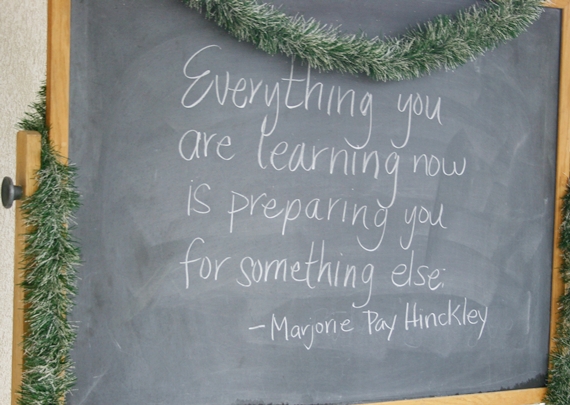 Everything you
are learning now
is preparing you
for something else.
-Marjorie Pay Hinckley